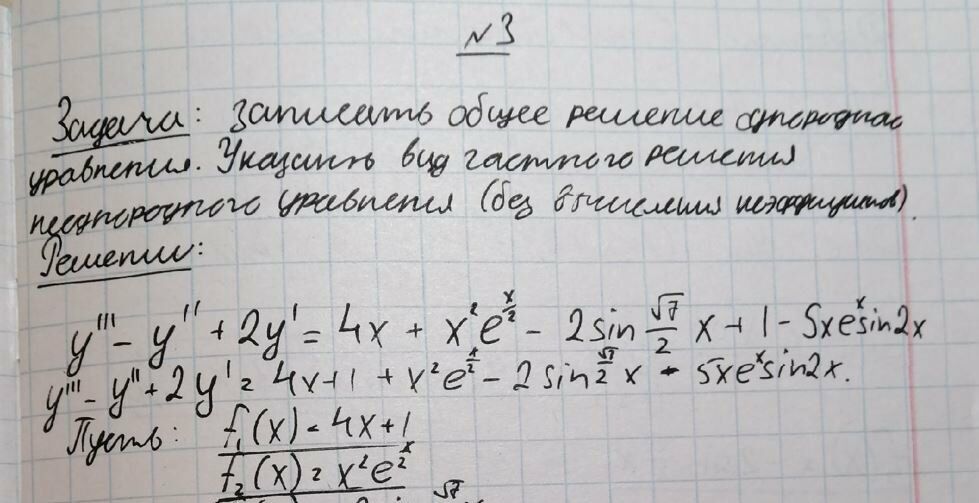 №3
Задача: Записать общее решение однородного
уравнения. Указать вид частного решения
неоднородного уравнения (без вычисления коэффициентов).
Решение:
y''' - y'' + 2y' = 4x + x²e^{x/2} - 2sin √7/2 x + 1 - 5xe^x sin2x
y''' - y'' + 2y' = 4x+1 + x²e^{x/2} - 2sin √7/2 x - 5xe^x sin2x.
Пусть: f₁(x) = 4x+1
f₂(x) = x²e^{x/2}